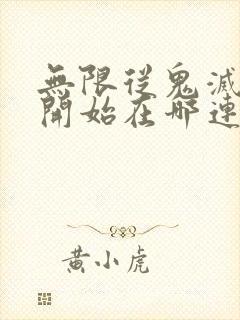 無限從鬼滅
開始在哪連
黃小虎